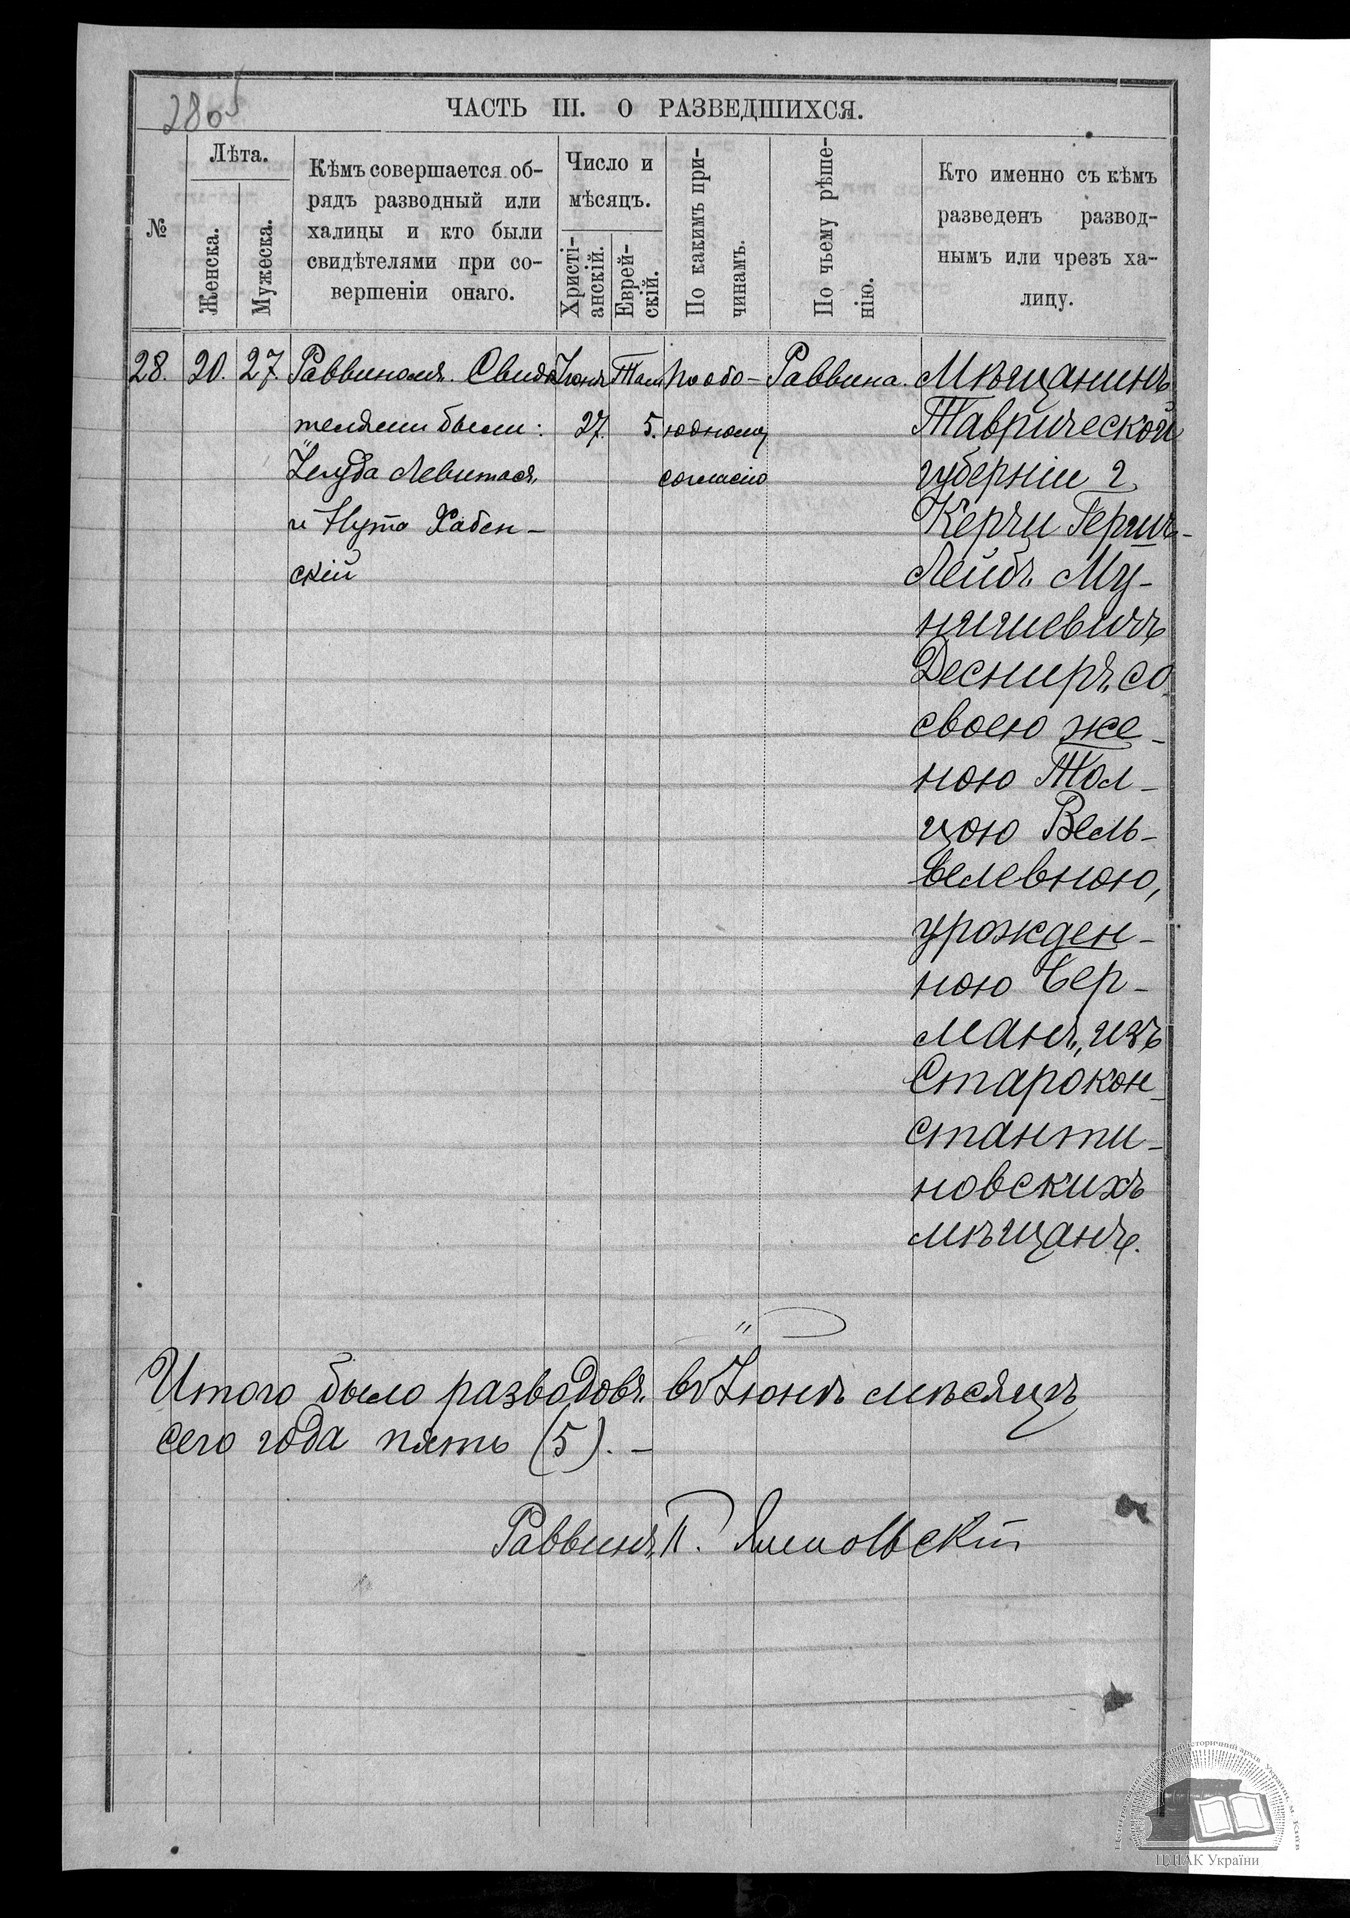 286
ЧАСТЬ III. О РАЗВЕДШИХСЯ.
№
Лѣта.
Женска.
Мужеска.
Кѣмъ совершается об-
рядъ разводный или
халицы и кто были
свидѣтелями при со-
вершеніи онаго.
Число и
мѣсяцъ.
Христі-
анскій.
Еврей-
скій.
По какимъ при-
чинамъ.
По чьему рѣше-
нію.
Кто именно съ кѣмъ
разведенъ развод-
нымъ или чрезъ ха-
лицу.
28.
20.
27.
Раввиномъ. Свидѣ
телями были:
Іегуда Левитасъ,
и Нута Хабен-
скій
Іюня
27.
Там
5.
По обо-
юдному
согласію
Раввина.
Мѣщанинъ
Таврической
губерніи г.
Керчи Гершъ-
Лейбъ Му-
нишевичъ
Деснеръ, со
своею же-
ною Тол-
цою Вель-
велевною,
урожден-
ною Бер-
манъ, изъ
Старокон-
стантиновскихъ
мѣщанъ.
Итого было разводовъ въ Іюнѣ мѣсяцѣ
сего года пять (5). —
Раввинъ П. Ямпольскій
Центральний державний історичний архів України, м. Київ
ЦДІАК України